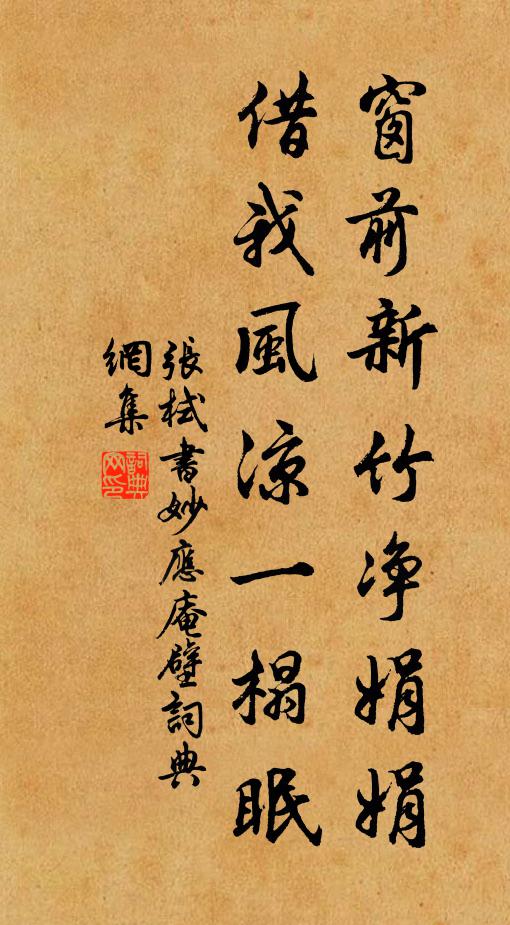 窗前新竹净娟娟
借我風凉一榻眠
張栻書妙應庵壁詞典
網集
詞典網印